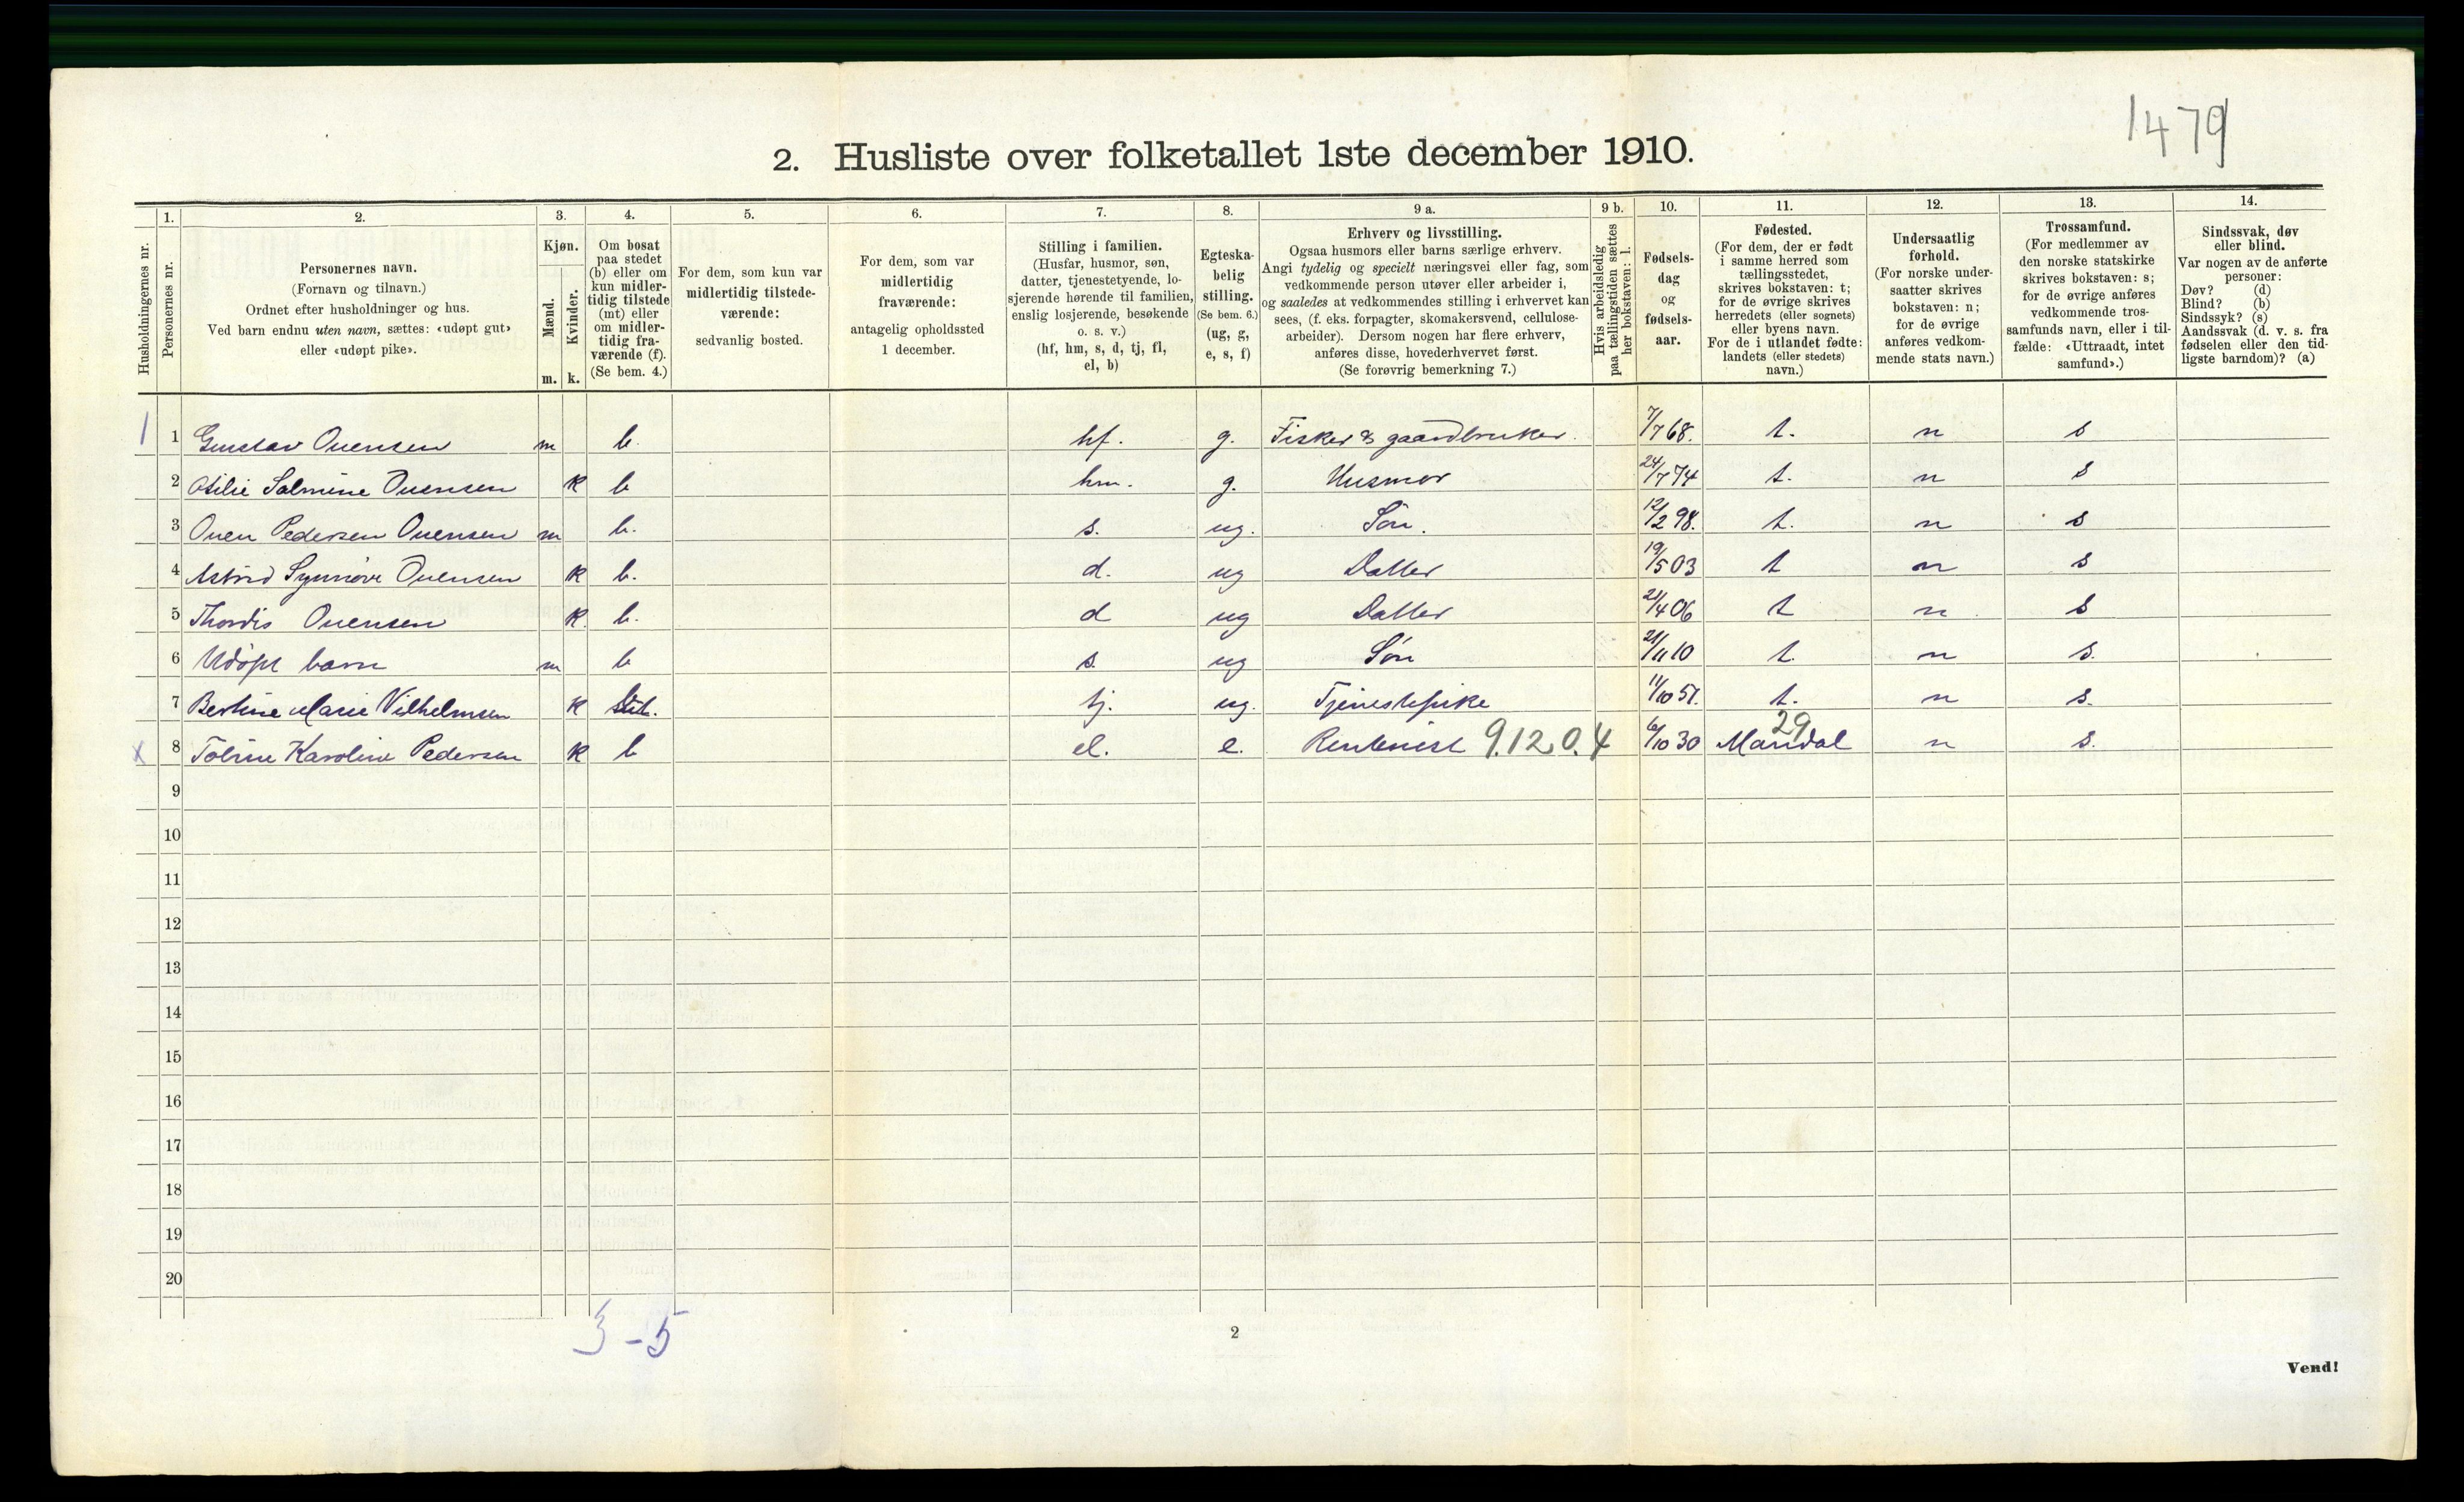 1479
2. Husliste over folketallet 1ste december 1910.
Husholdningernes nr.
1. Personernes nr.
2. Personernes navn.
(Fornavn og tilnavn.)
Ordnet efter husholdninger og hus.
Ved barn endnu uten navn, sættes: «udøpt gut»
eller «udøpt pike».
3. Kjøn.
Mænd. Kvinder.
m. k.
4. Om bosat
paa stedet
(b) eller om
kun midler-
tidig tilstede
(mt) eller
om midler-
tidig fra-
værende (f).
(Se bem. 4.)
5. For dem, som kun var
midlertidig tilstede-
værende:
sedvanlig bosted.
6. For dem, som var
midlertidig
fraværende:
antagelig opholdssted
1 december.
7. Stilling i familien.
(Husfar, husmor, søn,
datter, tjenestetyende, lo-
sjerende hørende til familien,
enslig losjerende, besøkende
o. s. v.)
(hf, hm, s, d, tj, fl,
el, b)
8. Egteska-
belig
stilling.
(Se bem. 6.)
(ug, g,
e, s, f)
9 a. Erhverv og livsstilling.
Ogsaa husmors eller barns særlige erhverv.
Angi tydelig og specielt næringsvei eller fag, som
vedkommende person utøver eller arbeider i,
og saaledes at vedkommendes stilling i erhvervet kan
sees, (f. eks. forpagter, skomakersvend, cellulose-
arbeider). Dersom nogen har flere erhverv,
anføres disse, hovederhvervet først.
(Se forøvrig bemerkning 7.)
9 b. Hvis arbeidsledig
paa tællingstiden sættes
her bokstaven: l.
10. Fødsels-
dag
og
fødsels-
aar.
11. Fødested.
(For dem, der er født
i samme herred som
tællingsstedet,
skrives bokstaven: t;
for de øvrige skrives
herredets (eller sognets)
eller byens navn.
For de i utlandet fødte:
landets (eller stedets)
navn.)
12. Undersaatlig
forhold.
(For norske under-
saatter skrives
bokstaven: n;
for de øvrige
anføres vedkom-
mende stats navn.)
13. Trossamfund.
(For medlemmer av
den norske statskirke
skrives bokstaven: s;
for de øvrige anføres
vedkommende tros-
samfunds navn, eller i til-
fælde: «Uttraadt, intet
samfund».)
14. Sindssvak, døv
eller blind.
Var nogen av de anførte
personer:
Døv? (d)
Blind? (b)
Sindssyk? (s)
Aandssvak (d. v. s. fra
fødselen eller den tid-
ligste barndom)? (a)
1 1 Gustav Ouensen m b. hf. g. Fisker & gaardbruker. 7/7 68. t. n s
2 Otilie Salmine Ouensen k b hm. g. Husmor 24/7 74 t. n s
3 Ouen Pedersen Ouensen m b. s. ug. Søn. 12/2 98. t. n s
4 Astrid Synnøve Ouensen k b. d. ug Datter 19/5 03 t n s
5 Thordis Ouensen k. b. d ug Datter 21/4 06 t n s
6 Udøpt barn m b s. ug Søn 21/11 10 t. n s.
7 Bertine Marie Vilhelmsen k tj. ug. Tjenestepike 11/10 51. t. n s.
x 8 Tobine Karoline Pedersen k b el. e. Rentenist 9.12.0.4 6/10 30 Mandal 29 n s.
9
10
11
12
13
14
15
16
17
18
19
20
3-5
2
Vend!